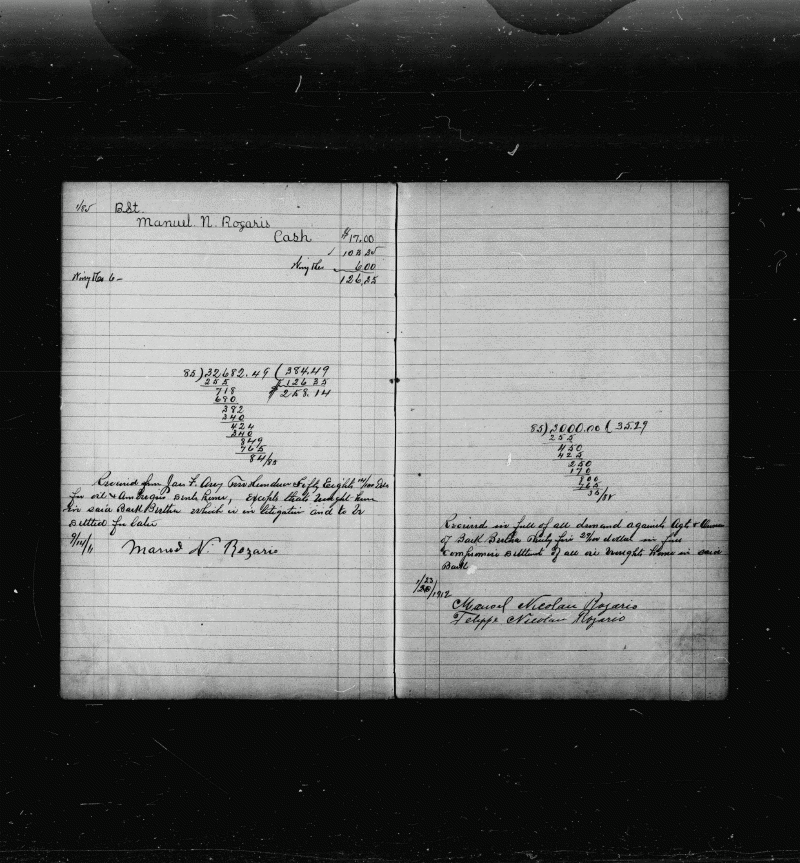 1/85 BSt.
Manuel N. Rozaris
Cash $17.00
103.35
600
6 –
126.35
85)32682.49(384.49
255 126 35
718 $258.14
680
382
340
424
340
849
765
84/85
Received from Jas F. Avery Two Hundred Fifty Eight 14/100 Dols
for oil
in said Bark Bertha which is in litigation and to be
settled for later
9/14/11 Manuel N. Rozario
85)3000.00(35.29
255
450
425
250
170
800
765
35/85
Received in full of all demand against Agt &
of Bark Bertha Thirty five 29/100 dollar in full
Compromise Settlement of all in said
Bark
1/23
/1912
Manoel Nicolau Rozario
Felippe Nicolau Rozario